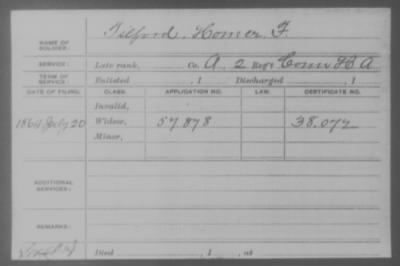 NAME OF SOLDIER: Tilford, Homer F.
SERVICE: Late rank, Co. A, 2 Reg't Conn H A
TERM OF SERVICE: Enlisted , 1 Discharged , 1
DATE OF FILING. CLASS. APPLICATION NO. LAW. CERTIFICATE NO.
Invalid,
1864 July 20 Widow, 57.878 38.072
Minor,
ADDITIONAL SERVICES:
REMARKS:
Died , 1 , at